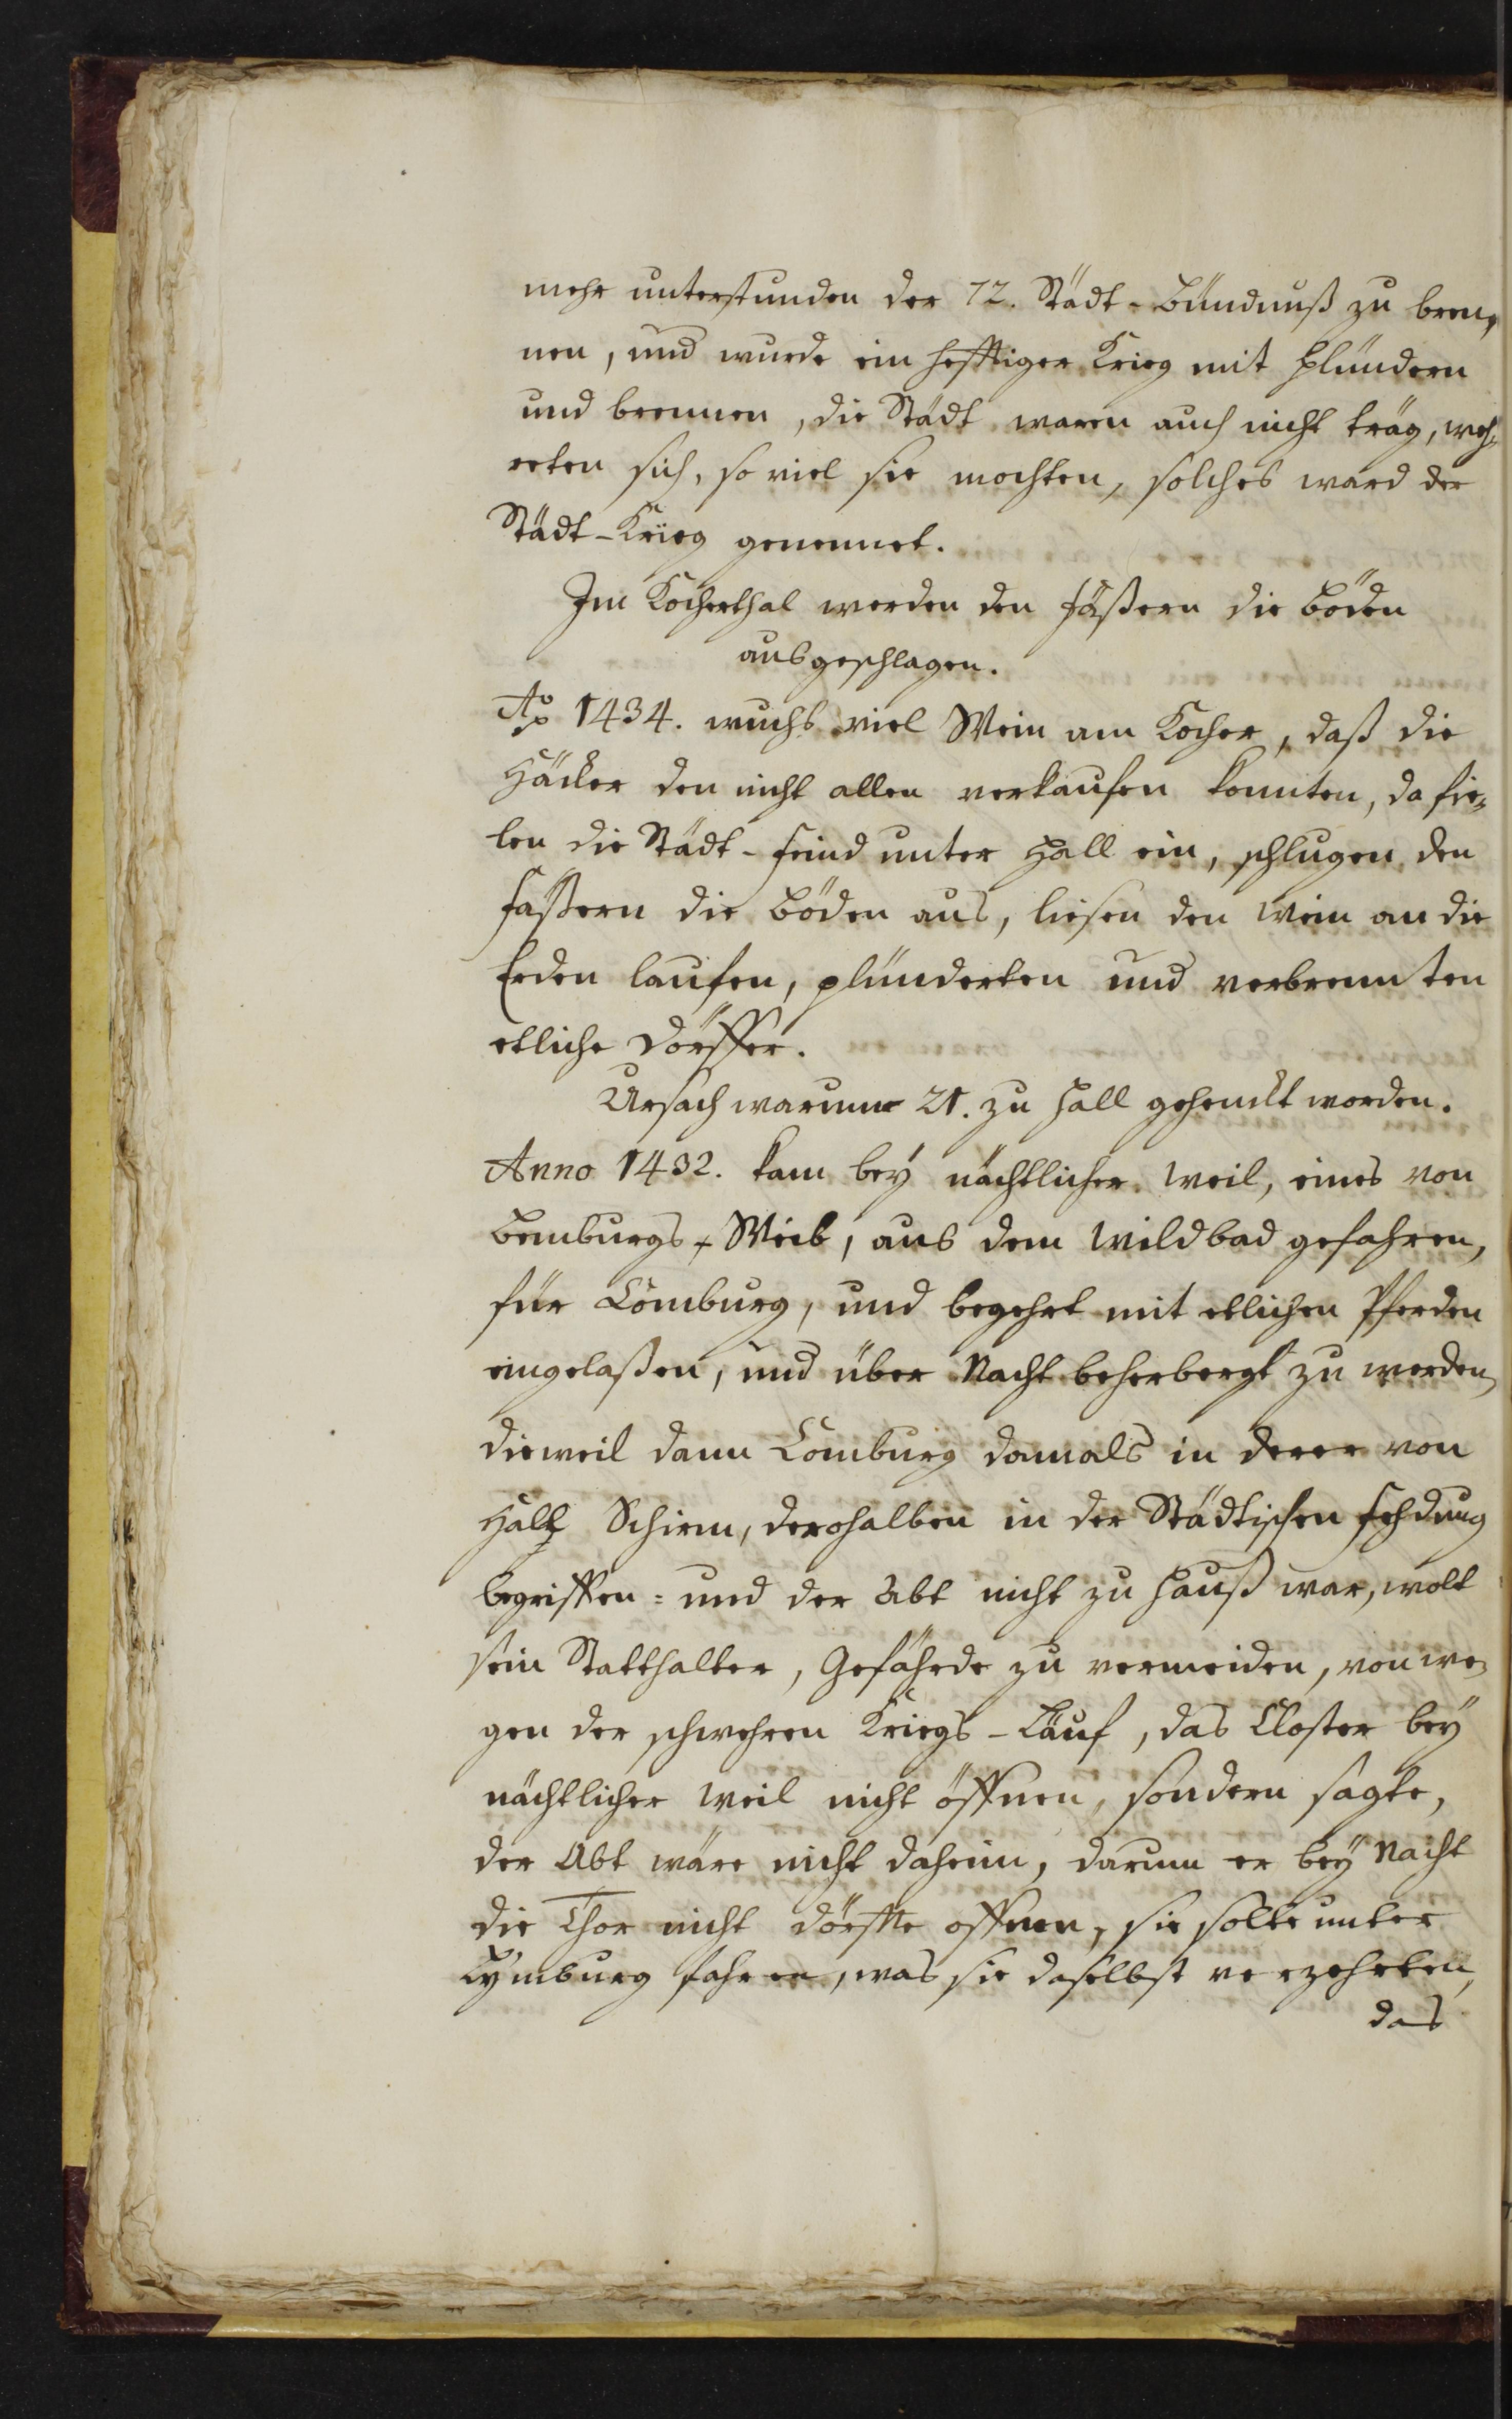 mehr unterstunden der 72. Städt-Bündnuß zu bren¬
nen, und wurde ein hefftiger Krieg mit plündern
und brennen, die Städt waren auch nicht träg, weh¬
reten sich, so viel sie mochten, solches ward der
Städt-Krieg genennet.
Im Kocherthal werden den Fäßern die Böden
ausgeschlagen.
Ao 1434. wuchs viel Wein am Kocher, daß die
Häcker den nicht allen verkaufen konnten, da fie¬
len die Städt-Feind unter Hall ein, schlugen den
Fäßern die Böden aus, liesen den Wein an die
Erden laufen, plünderten und verbrennten
etliche Dörffer.
Ursach warumm 21. zu Hall gehenckt worden.
Anno 1432. kam bey nächtlicher Weil, eines von
Bemburgs Weib, aus dem Wildbad gefahren,
für Comburg, und begehrt mit etlichen Pferden
eingelaßen, und über Nacht beherbergt zu werden,
dieweil dann Comburg damals in derer von
Hall Schirm, derohalben in der Städtischen Fehdung
begriffen: und der Abt nicht zu Hauß war, wolt
sein Statthalter, Gefährde zu vermeiden, von we¬
gen der schwehren Kriegs-Läuf, das Closter bey
nächtlicher Weil nicht öffnen, sondern sagte,
der Abt wäre nicht daheim, darum er bey Nacht
die Thor nicht dörffte offnen, sie solte unter
Lymburg fahren, was sie daselbst verzehrten,
das